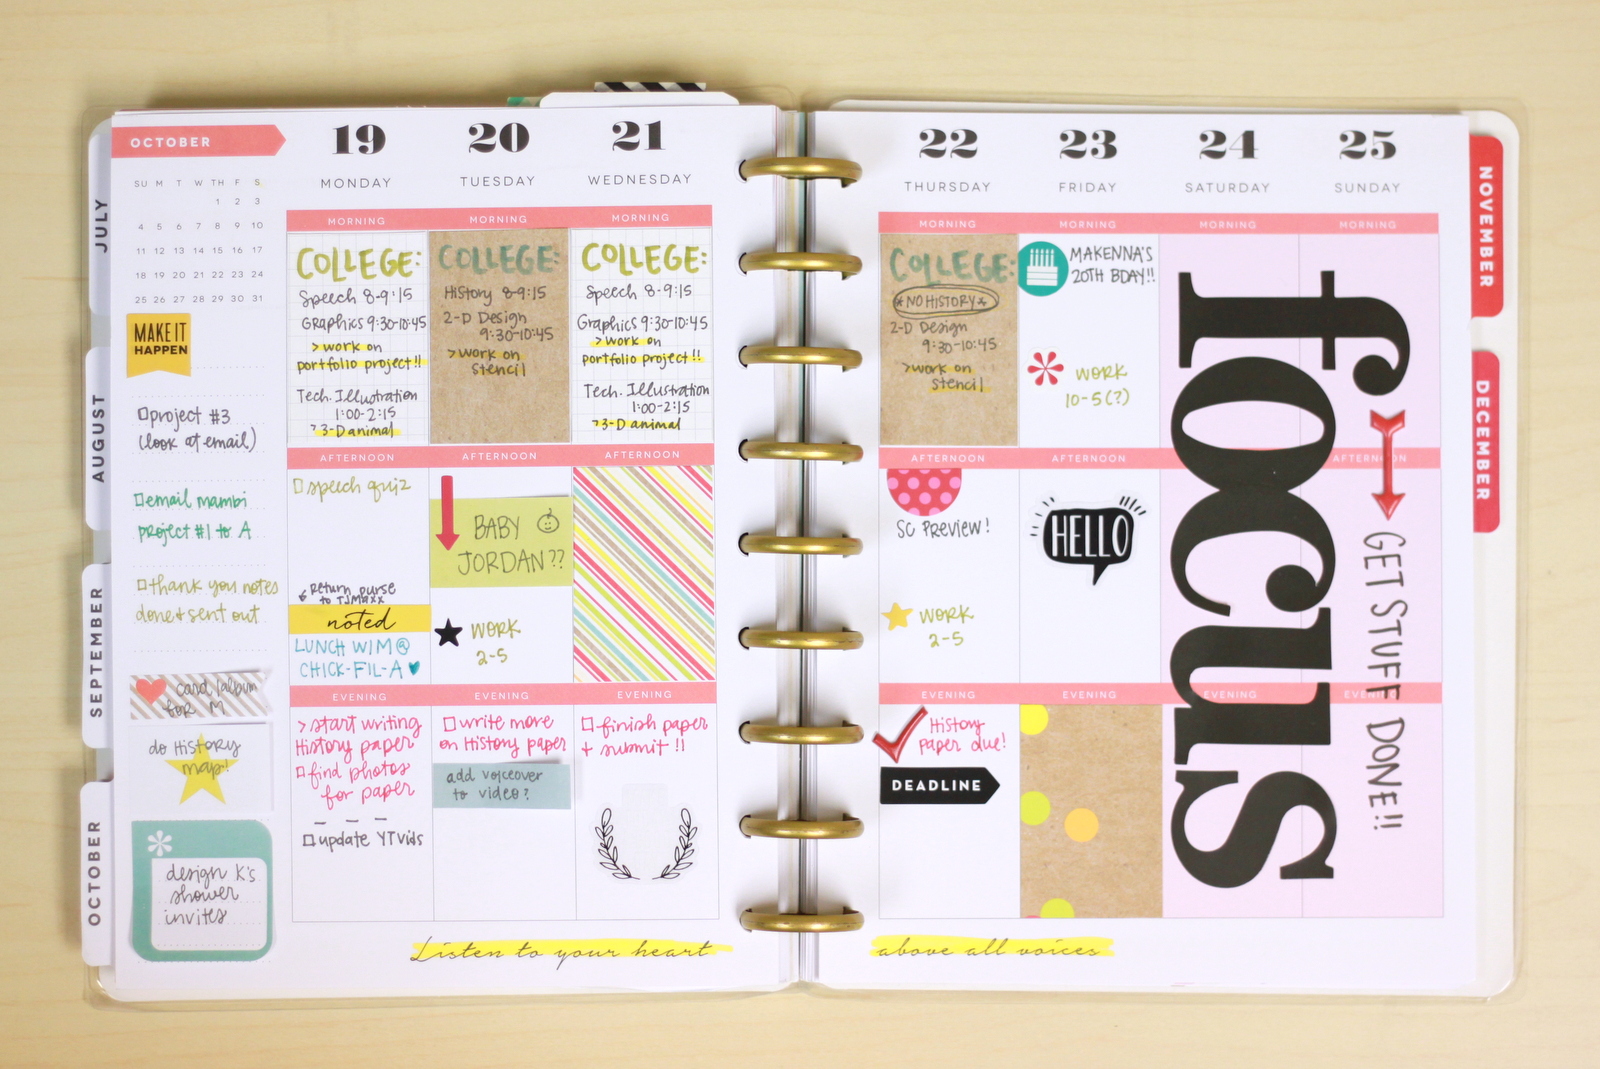 OCTOBER
SU M T W TH F S
1 2 3
4 5 6 7 8 9 10
11 12 13 14 15 16 17
18 19 20 21 22 23 24
25 26 27 28 29 30 31
MAKE IT
HAPPEN
project #3
(look at email)
email mambi
project #1 to A
thank you notes
done & sent out
card/album
for M
do History
map!
design K's
shower
invites
JULY
AUGUST
SEPTEMBER
OCTOBER
19
MONDAY
MORNING
COLLEGE:
Speech 8-9:15
Graphics 9:30-10:45
>work on
portfolio project!!
Tech. Illustration
1:00-2:15
>3-D animal
AFTERNOON
speech quiz
Return purse
to TJMaxx
noted
LUNCH W/M @
CHICK-FIL-A
EVENING
>start writing
History paper
find photos
for paper
update YT vids
20
TUESDAY
MORNING
COLLEGE:
History 8-9:15
2-D Design
9:30-10:45
>work on
stencil
AFTERNOON
BABY
JORDAN??
WORK
2-5
EVENING
write more
on History paper
add voiceover
to video?
21
WEDNESDAY
MORNING
COLLEGE:
Speech 8-9:15
Graphics 9:30-10:45
>work on
portfolio project!!
Tech. Illustration
1:00-2:15
>3-D animal
AFTERNOON
EVENING
finish paper
+ submit!!
Listen to your heart
22
THURSDAY
MORNING
COLLEGE:
*NO HISTORY*
2-D Design
9:30-10:45
>work on
stencil
AFTERNOON
SC PREVIEW!
WORK
2-5
EVENING
History
paper due!
DEADLINE
23
FRIDAY
MORNING
MAKENNA'S
20TH BDAY!!
WORK
10-5(?)
AFTERNOON
HELLO
EVENING
24
SATURDAY
MORNING
focus
EVENING
25
SUNDAY
MORNING
AFTERNOON
GET STUFF DONE!!
above all voices
NOVEMBER
DECEMBER